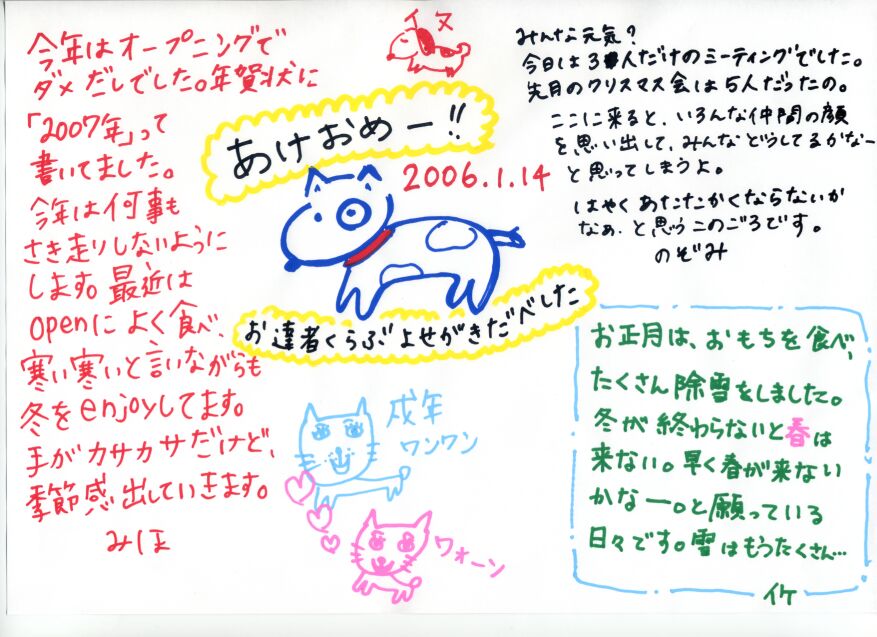 今年はオープニングで
ダメだしでした。年賀状に
「2007年」って
書いてました。
今年は何事も
さき走りしないように
します。最近は
openによく食べ、
寒い寒いと言いながらも
冬をenjoyしてます。
手がカサカサだけど、
季節感出していきます。
みほ
イヌ
あけおめー!!
2006.1.14
お達者くらぶよせがきだべした
戌年
ワンワン
ワォーン
みんな元気?
今日は3人だけのミーティングでした。
先月のクリスマス会は5人だったの。
ここに来ると、いろんな仲間の顔
を思い出して、みんなどうしてるかなー
と思ってしまうよ。
はやくあたたかくならないか
なぁ、と思うこのごろです。
のぞみ
お正月は、おもちを食べ、
たくさん除雪をしました。
冬が終わらないと春は
来ない。早く春が来ない
かなー。と願っている
日々です。雪はもうたくさん…
イケ